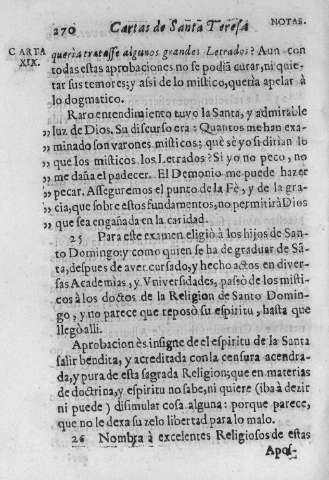 270 Cartas de Santa Teresa NOTAS.
CARTA XIX.
querìa tratasse algunos grandes Letrados? Aun con
todas estas aprobaciones no se podiã curar, ni quie-
tar sus temores; y asi de lo mistico, querìa apelar à
lo dogmatico.
Raro entendimiento tuvo la Santa, y admirable
„ luz de Dios. Su discurso era: Quantos me han exa-
„ minado son varones misticos; què sè yo si diràn lo
„ que los misticos los Letrados? Si yo no peco, no
„ me daña el padecer. El Demonio me puede hazer
„ pecar. Asseguremos el punto de la Fè, y de la gra-
„ cia, que sobre estos fundamentos, no permitirà Dios
„ que sea engañada en la caridad.
25 Para este examen eligiò à los hijos de San-
to Domingo; y como quien se ha de graduar de Sã-
ta, despues de aver cursado, y hecho actos en diver-
sas Academias, y Vniversidades, passò de los misti-
cos à los doctos de la Religion de Santo Domin-
go, y no parece que reposò su espiritu, hasta que
llegò alli.
Aprobacion ès insigne de el espiritu de la Santa
salir bendita, y acreditada con la censura acendra-
da, y pura de esta sagrada Religion; que en materias
de doctrina, y espiritu no sabe, ni quiere (iba à dezir
ni puede) disimular cosa alguna: porque parece,
que no le dexa su zelo libertad para lo malo.
26 Nombra à excelentes Religiosos de estas
Apos-